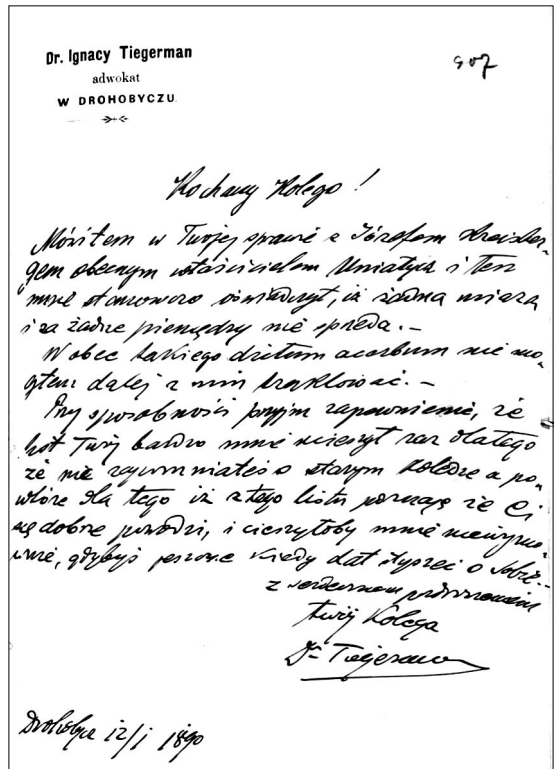 Dr. Ignacy Tiegerman
adwokat
W DROHOBYCZU.
907
Kochany Kolego!
Mówiłem w Twojej sprawie z Józefem Kreisber-
gem obecnym właścicielem Uniatycz i Ten
mnie stanowczo oświadczył, iż żadną miarą
i za żadne pieniędzy nie sprzeda. –
Wobec takiego dictum acerbum nie mo-
głem dalej z nim traktować. –
Przy sposobności przyjm zapewnienie, że
list Twój bardzo mnie ucieszył raz dlatego
że nie zapomniałeś o starym koledze a po-
wtóre dla tego iż z tego listu poznaję że Ci
się dobrze powodzi, i cieszyłoby mnie niezmier-
nie, gdybyś jeszcze kiedy dał słyszeć o sobie. –
z serdecznem pozdrowieniem
twój Kolega
Dr Tiegerman
Drohobycz 12/1 1890